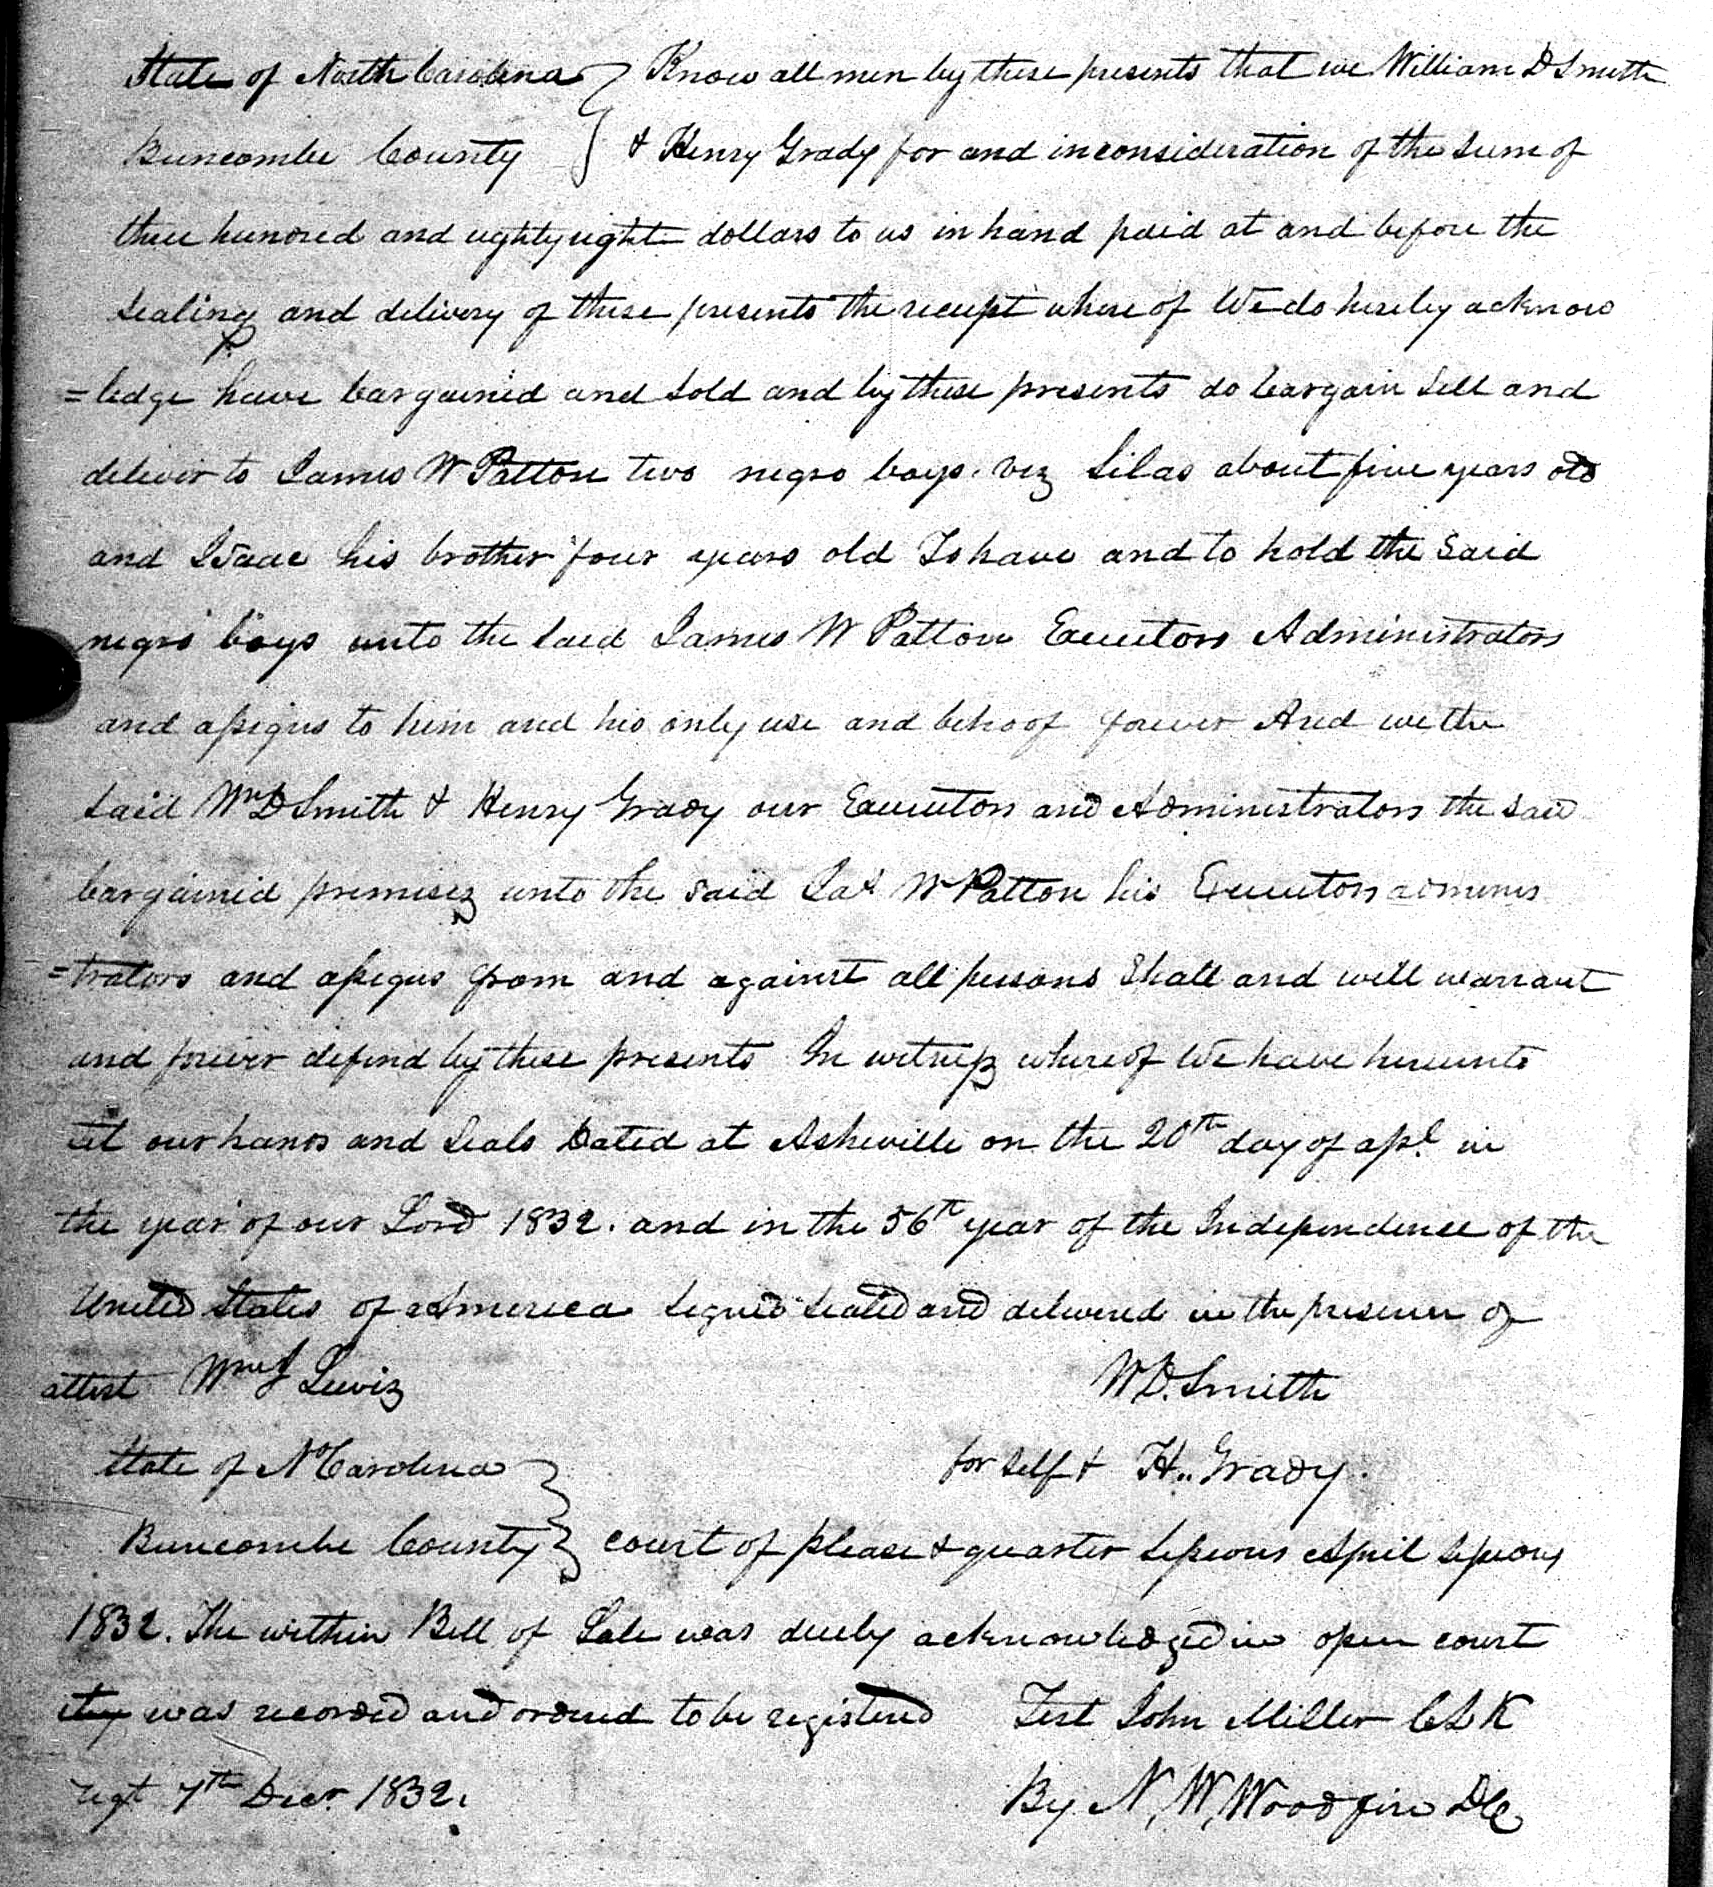 State of North Carolina } Know all men by these presents that we William D Smith
Buncombe County } & Henry Grady for and inconsideration of the Sum of
three hundred and eighty eight dollars to us in hand paid at and before the
Sealing and delivery of these presents the receipt where of We do hereby acknow
=ledge have bargained and Sold and by these presents do bargain Sell and
deliver to James W Patton two negro boys. viz Silas about five years old
and Isaac his brother four years old To have and to hold the Said
negro boys unto the Said James W Patton Executors Administrators
and assigns to him and his only use and behoof forever And we the
Said Wm D Smith & Henry Grady our Executors and Administrators the said
bargained premisez unto the said Jas W Patton his Executors adminis
=trators and assigns from and against all persons Shall and will warrant
and forever defend by these presents In witness whereof We have hereunto
set our hands and Seals Dated at Asheville on the 20th day of apl. in
the year of our Lord 1832. and in the 56th year of the Independence of the
United States of America Signed Sealed and delivered in the presence of
attest Wm J Lewiz W D. Smith
State of No Carolina } for Self & H.. Grady.
Buncombe County } court of please & quarter Sessions April Sessions
1832. The within Bill of Sale was duely acknowledged in open court
was recorded and ordered to be registered Test John Miller CLK
regt 7th Decr. 1832. By N. W. Woodfin DC